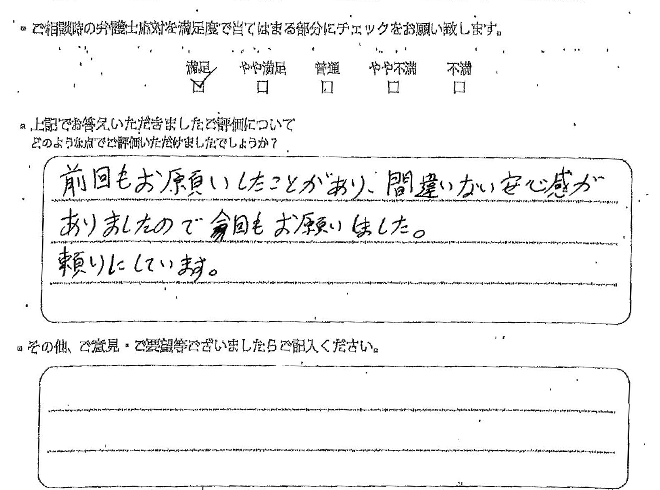 ご相談時の弁護士応対を満足度で当てはまる部分にチェックをお願い致します。
満足 やや満足 普通 やや不満 不満
上記でお答えいただきましたご評価について
どのような点でご評価いただけましたでしょうか？
前回もお願いしたことがあり、間違いない安心感が
ありましたので今回もお願いしました。
頼りにしています。
その他、ご意見・ご要望等ございましたらご記入ください。